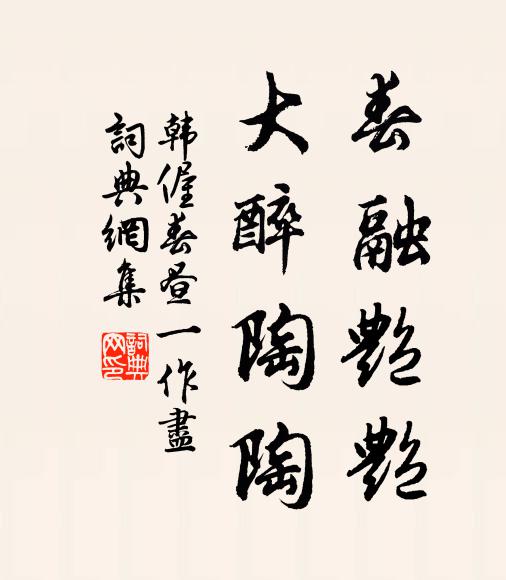 春融艷艷
大醉陶陶
韩偓春昼一作盡
詞典網集
詞典网印